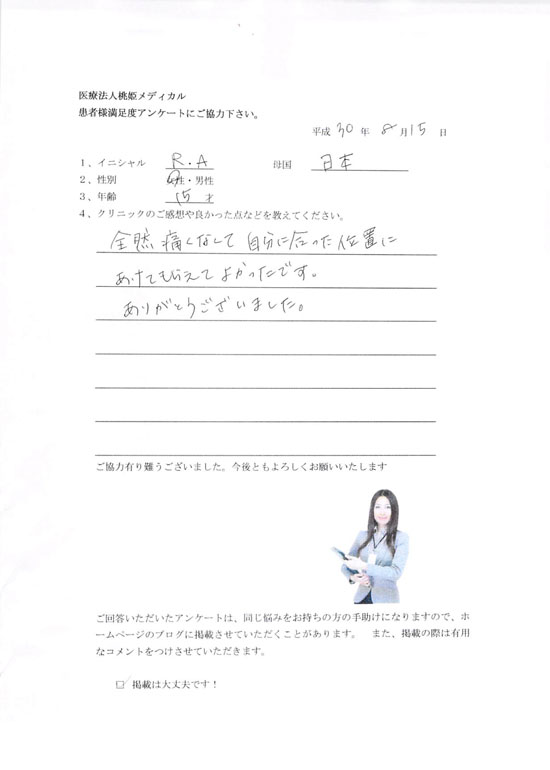 医療法人桃姫メディカル
患者様満足度アンケートにご協力下さい。
平成 30 年 8 月 15 日
1、イニシャル R.A 母国 日本
2、性別 女性・男性
3、年齢 15 才
4、クリニックのご感想や良かった点などを教えてください。
全然痛くなくて自分に合った位置に
あけてもらえてよかったです。
ありがとうございました。
ご協力有り難うございました。今後ともよろしくお願いいたします
ご回答いただいたアンケートは、同じ悩みをお持ちの方の手助けになりますので、ホ
ームページのブログに掲載させていただくことがあります。 また、掲載の際は有用
なコメントをつけさせていただきます。
☑ 掲載は大丈夫です！